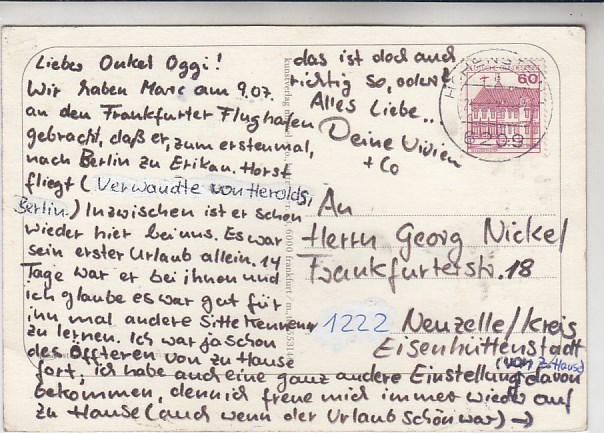 Lieber Onkel Oggi!
Wir haben Marc am 9.07.
an den Frankfurter Flughafen
gebracht, daß er, zum erstenmal,
nach Berlin zu Erika u. Horst
fliegt (Verwandte von Herolds,
Berlin.) Inzwischen ist er schon
wieder hier bei uns. Es war
sein erster Urlaub allein. 14
Tage war er bei ihnen und
ich glaube es war gut für
ihn mal andere Sitte kennen
zu lernen. Ich war ja schon
des Öfteren von zu Hause
fort, ich habe auch eine ganz andere Einstellung davon
(von zu Hause)
bekommen, denn ich freue mich immer wieder auf
zu Hause (auch wenn der Urlaub schön war) →
das ist doch auch
richtig so, oder?
Alles Liebe...
Deine Vivien
+ Co
60
8209
An
Herrn Georg Nickel
Frankfurterstr. 18
1222 Neuzelle/Kreis
Eisenhüttenstadt
6000 frankfurt/m.